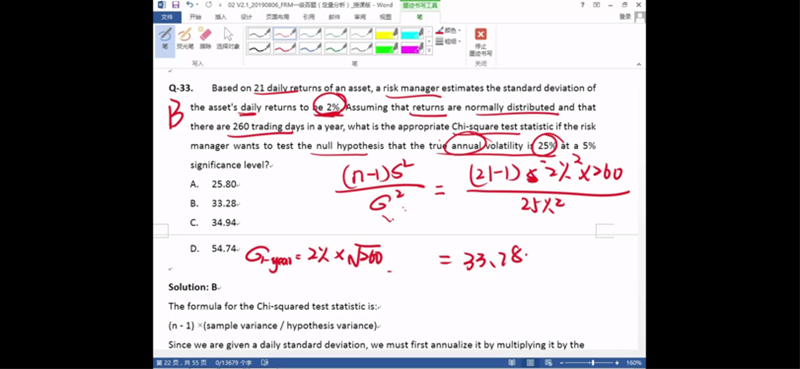 02 V2.1_20190806_FRM一级百题（定量分析）_授课版 - Word
墨迹书写工具
文件 开始 插入 设计 页面布局 引用 邮件 审阅 视图 笔 登录
笔 荧光笔 橡皮擦 选择对象
颜色
粗细
停止墨迹书写
写入 笔 关闭
Q-33. Based on 21 daily returns of an asset, a risk manager estimates the standard deviation of
the asset's daily returns to be 2%. Assuming that returns are normally distributed and that
B
there are 260 trading days in a year, what is the appropriate Chi-square test statistic if the risk
manager wants to test the null hypothesis that the true annual volatility is 25% at a 5%
significance level?
A. 25.80
B. 33.28
C. 34.94
D. 54.74
(n-1)S² / σ² = (21-1) 2%² × 260 / 25%²
= 33.28
σ₁₋year = 2% × √260
Solution: B
The formula for the Chi-squared test statistic is:
(n - 1) ×(sample variance / hypothesis variance)
Since we are given a daily standard deviation, we must first annualize it by multiplying it by the
第 22 页，共 55 页 0/13679 个字 160%